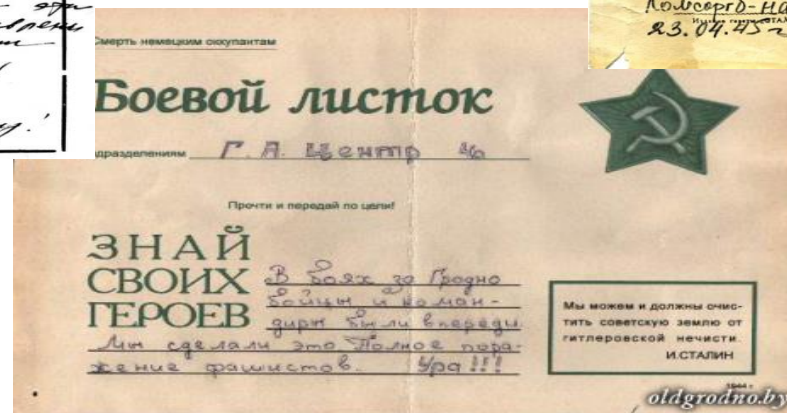 эти
у!
Комсорг
23.04.45 г
Смерть немецким оккупантам
Боевой листок
дразделениям Г. А. Центр
Прочти и передай по цепи!
ЗНАЙ
СВОИХ
ГЕРОЕВ
В боях за Гродно
бойцы и коман-
диры были впереди.
Мы сделали это Полное пора-
жение фашистов. Ура!!!
Мы можем и должны очис-
тить советскую землю от
гитлеровской нечисти.
И.СТАЛИН
1944 г
oldgrodno.by